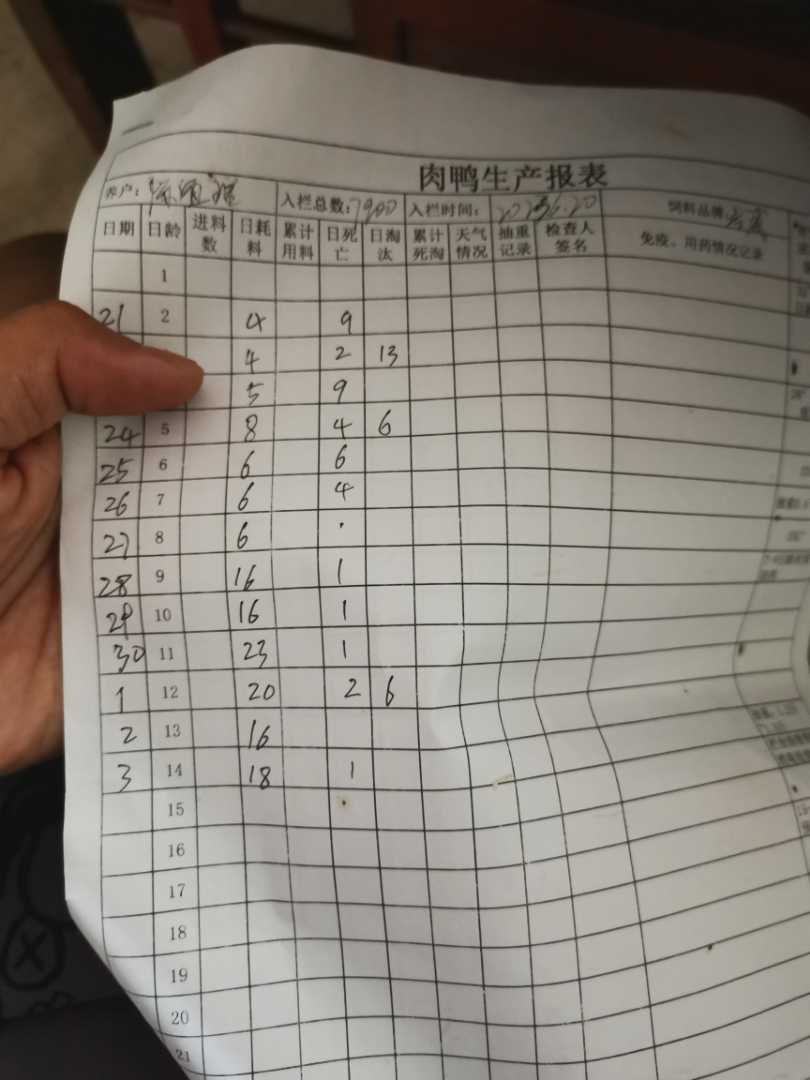 肉鸭生产报表
养户： 入栏总数：7900 入栏时间： 饲料品牌
日期 日龄 进料数 日耗料 累计用料 日死亡 日淘汰 累计死淘 天气情况 抽重记录 检查人签名 免疫、用药情况记录
1
21 2 4 9
4 2 13
5 9
24 5 8 4 6
25 6 6 6
26 7 6 4
27 8 6 ·
28 9 16 1
29 10 16 1
30 11 23 1
1 12 20 2 6
2 13 16
3 14 18 1
15
16
17
18
19
20
21